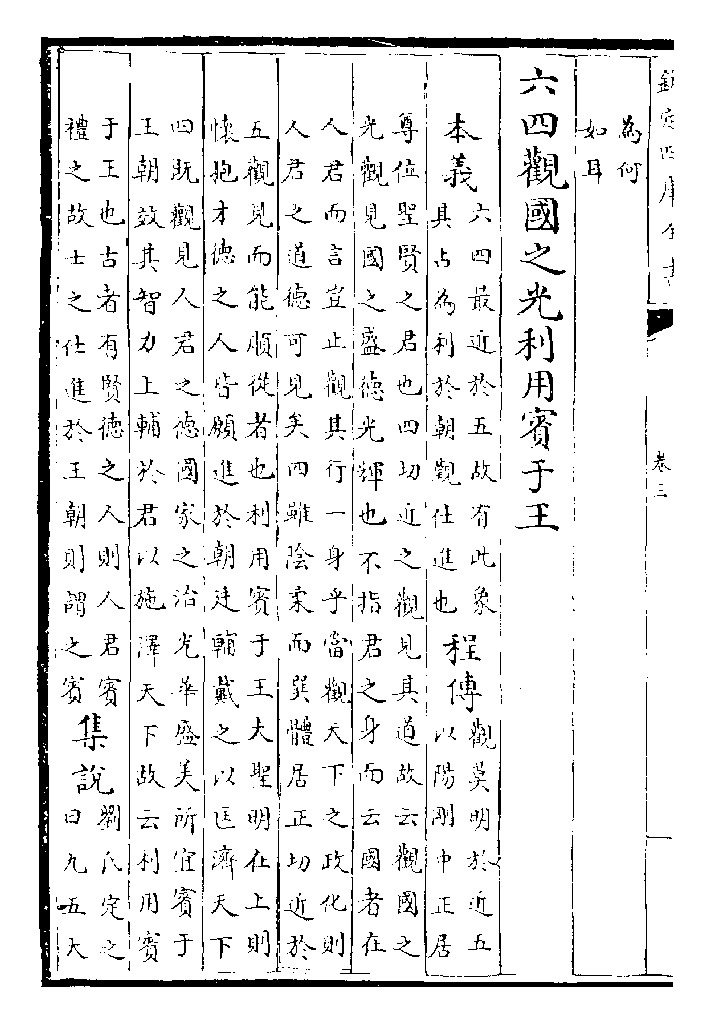 欽定四庫全書
卷三
為何
如耳
六四觀國之光利用賓于王
本義
六四最近於五故有此象
其占為利於朝覲仕進也
程傳
觀莫明於近五
以陽剛中正居
尊位聖賢之君也四切近之觀見其道故云觀國之
光觀見國之盛德光輝也不指君之身而云國者在
人君而言豈止觀其行一身乎當觀天下之政化則
人君之道德可見矣四雖陰柔而巽體居正切近於
五觀見而能順從者也利用賓于王夫聖明在上則
懷抱才德之人皆願進於朝廷輔戴之以匡濟天下
四既觀見人君之德國家之治光華盛美所宜賓于
王朝效其智力上輔於君以施澤天下故云利用賓
于王也古者有賢德之人則人君賓
禮之故士之仕進於王朝則謂之賓
集說
劉氏定之
曰九五大